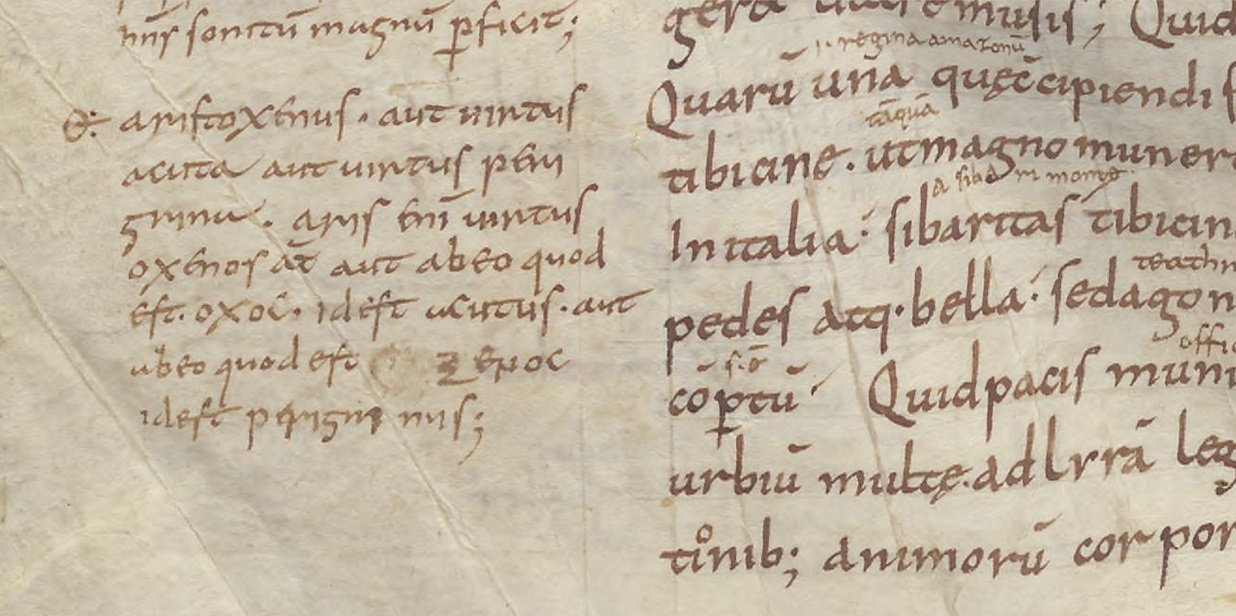 sonitū magnū ꝑficit;
aristoxenus · aut uirtus
acuta aut uirtus peri
grina · aris enī uirtus
oxenos aut abeo quod
est · oxoc · idest acutus · aut
abeo quod est ξenoc
idest perigrinus;
musis; Quid
.i. regina amazonū
Quarū una quęc̄cipiendi
tāquā
tibicine · ut magno muner
a siba in monte
In italia · sibaritas tibicin
pedes atq· bella · sed agon
s· ō
cōꝑtū Quid pacis muni
urbiū multę · ad lrrā leg
tionib; animorū corpor